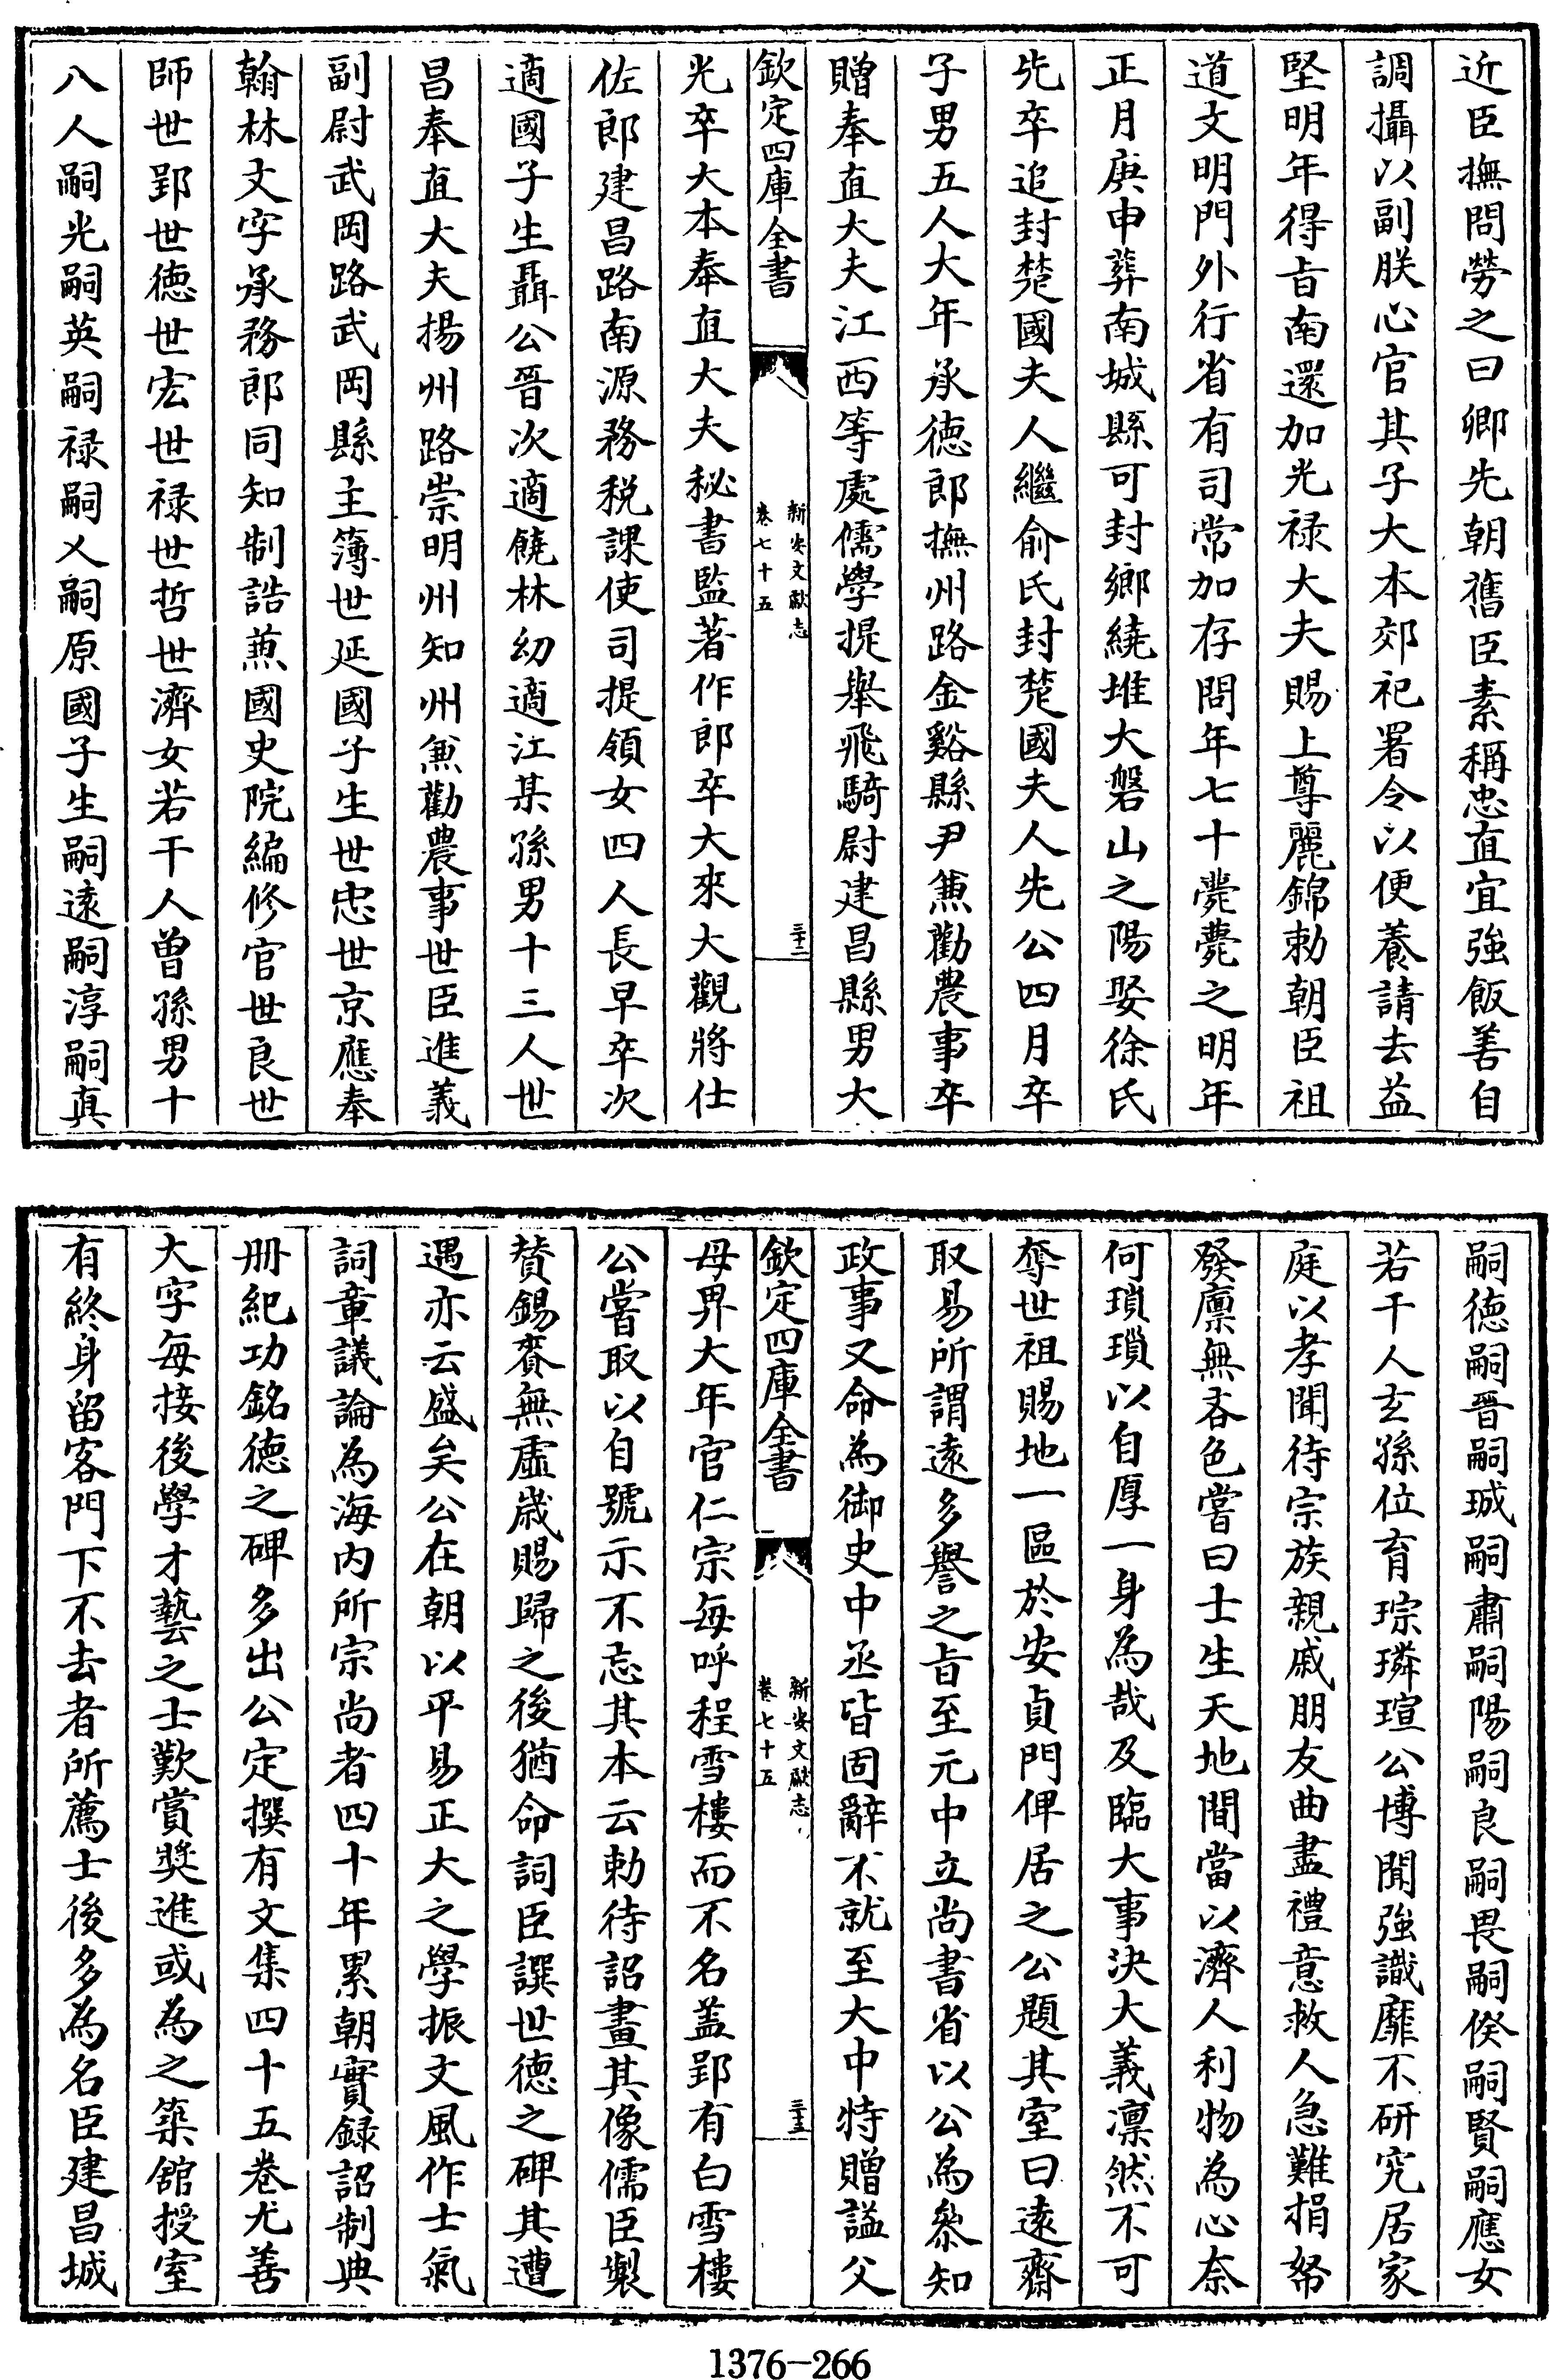 近臣撫問勞之曰卿先朝舊臣素稱忠直宜強飯善自
調攝以副朕心官其子大本郊祀署令以便養請去益
堅明年得旨南還加光禄大夫賜上尊麗錦勅朝臣祖
道文明門外行省有司常加存問年七十薨薨之明年
正月庚申葬南城縣可封鄉繞堆大磐山之陽娶徐氏
先卒追封楚國夫人繼俞氏封楚國夫人先公四月卒
子男五人大年承徳郎撫州路金谿縣尹兼勸農事卒
贈奉直大夫江西等處儒學提舉飛騎尉建昌縣男大
欽定四庫全書
新安文獻志
卷七十五
三十二
光卒大本奉直大夫秘書監著作郎卒大來大觀將仕
佐郎建昌路南源務税課使司提領女四人長早卒次
適國子生聶公晉次適饒林幼適江某孫男十三人世
昌奉直大夫揚州路崇明州知州兼勸農事世臣進義
副尉武岡路武岡縣主簿世延國子生世忠世京應奉
翰林文字承務郎同知制誥兼國史院編修官世良世
師世郢世徳世宏世禄世哲世濟女若干人曾孫男十
八人嗣光嗣英嗣禄嗣乂嗣原國子生嗣遠嗣淳嗣真
嗣徳嗣晉嗣珹嗣肅嗣陽嗣良嗣畏嗣俟嗣賢嗣應女
若干人玄孫位育琮璘瑄公博聞強識靡不研究居家
庭以孝聞待宗族親戚朋友曲盡禮意救人急難捐帑
發廪無吝色嘗曰士生天地間當以濟人利物為心奈
何瑣瑣以自厚一身為哉及臨大事決大義凛然不可
奪世祖賜地一區於安貞門俾居之公題其室曰遠齋
取易所謂遠多譽之旨至元中立尚書省以公為叅知
政事又命為御史中丞皆固辭不就至大中特贈謚父
欽定四庫全書
新安文獻志
卷七十五
三十三
母畀大年官仁宗每呼程雪樓而不名盖郢有白雪樓
公嘗取以自號示不忘其本云勅待詔畫其像儒臣製
賛錫賚無虚歳賜歸之後猶命詞臣譔世徳之碑其遭
遇亦云盛矣公在朝以平易正大之學振文風作士氣
詞章議論為海内所宗尚者四十年累朝實録詔制典
册紀功銘徳之碑多出公定撰有文集四十五卷尤善
大字每接後學才藝之士歎賞奬進或為之築舘授室
有終身留客門下不去者所薦士後多為名臣建昌城
1376-266